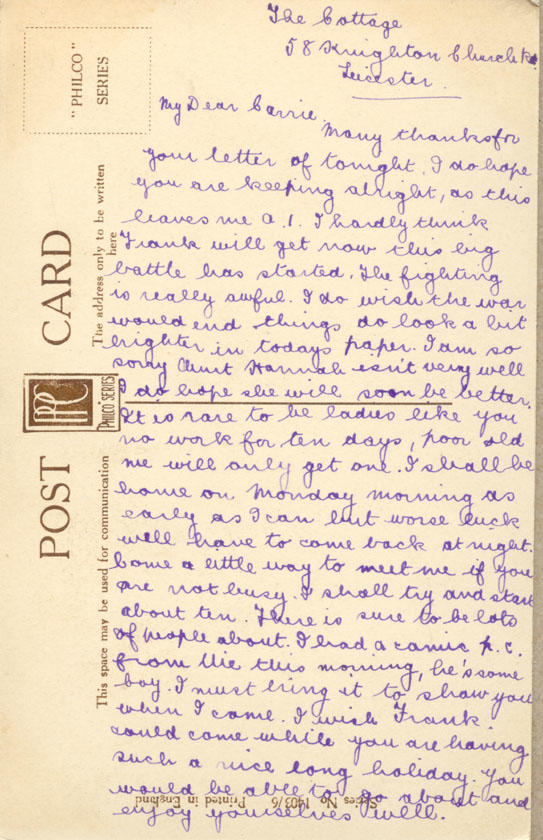 The Cottage
58 Knighton Church Rd.
Leicester.
My Dear Carrie.
Many thanks for
your letter of tonight. I do hope
you are keeping alright, as this
leaves me A.1. I hardly think
Frank will get now this big
battle has started. The fighting
is really awful. I do wish the war
would end things do look a bit
brighter in todays paper. I am so
sorry Aunt Hannah isn't very well
I do hope she will soon be better.
It is rare to be ladies like you
no work for ten days, poor old
me will only get one. I shall be
home on Monday morning as
early as I can but worse luck
will have to come back at night.
Come a little way to meet me if you
are not busy. I shall try and start
about ten. There is sure to be lots
of people about. I had a comic p.c.
from this morning, he's some
boy. I must bring it to show you
when I come. I wish Frank
could come while you are having
such a nice long holiday. You
would be able to go about and
enjoy yourselves well.
"PHILCO"
SERIES
POST CARD
The address only to be written
here
This space may be used for communication
PHILCO SERIES
Series No 1403/6 Printed in England